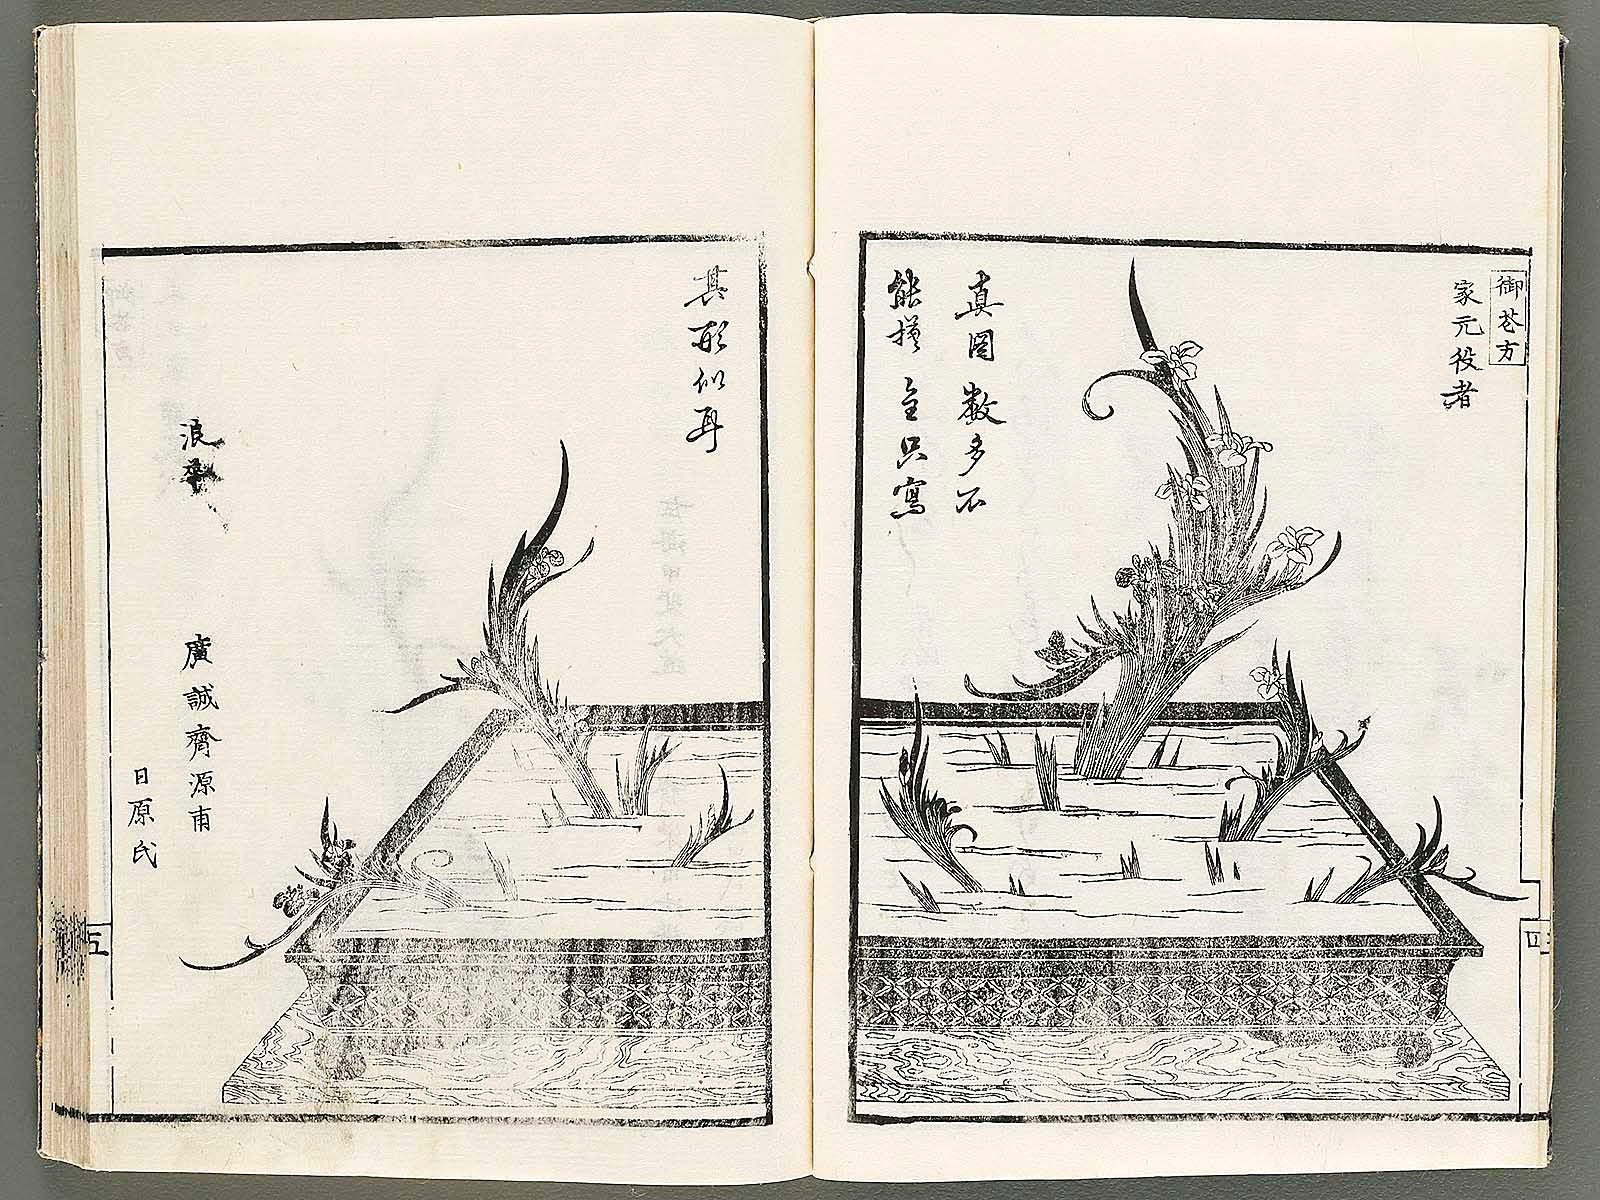 御花方
家元役者
真図数多不
能模全只寫
其形似耳
浪華
廣誠齋源甫
日原氏
四
五